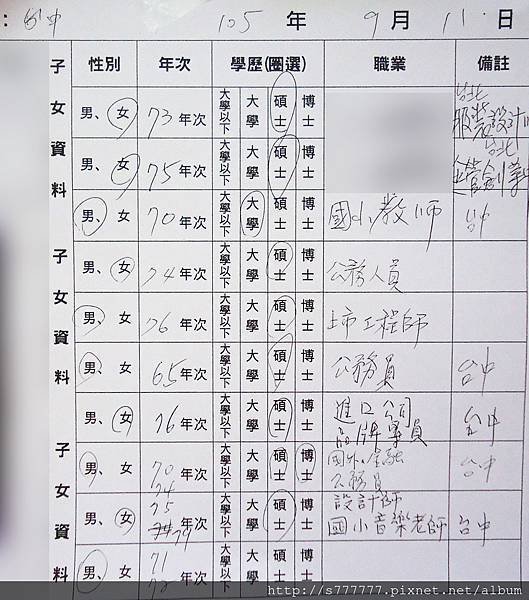 ：台中 105 年 9 月 11 日
子女資料 性別 年次 學歷(圈選) 職業 備註
男、女 73年次 大學以下 大學 碩士 博士 台北 服裝設計
男、女 75年次 大學以下 大學 碩士 博士 台北 企管創業
男、女 70年次 大學以下 大學 碩士 博士 國小教师 台中
子女資料
男、女 74年次 大學以下 大學 碩士 博士 公務人員
男、女 76年次 大學以下 大學 碩士 博士 工程師
男、女 65年次 大學以下 大學 碩士 博士 公務員 台中
男、女 76年次 大學以下 大學 碩士 博士 進口公司 品牌專員 台中
子女資料
男、女 70 74 年次 大學以下 大學 碩士 博士 國外金融 公務員 台中
男、女 75 79 年次 大學以下 大學 碩士 博士 設計師 國小音樂老師 台中
男、女 71 72 年次 大學以下 大學 碩士 博士
http://s777777.pixnet.net/album